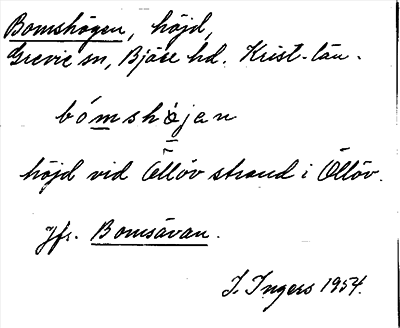 Bomshögen, höjd,
Grevie sn, Bjäre hd. Krist. län.
bómshøjan
höjd vid Öllöv strand i Öllöv.
Jfr. Bomsåvan.
I. Ingers 1954.